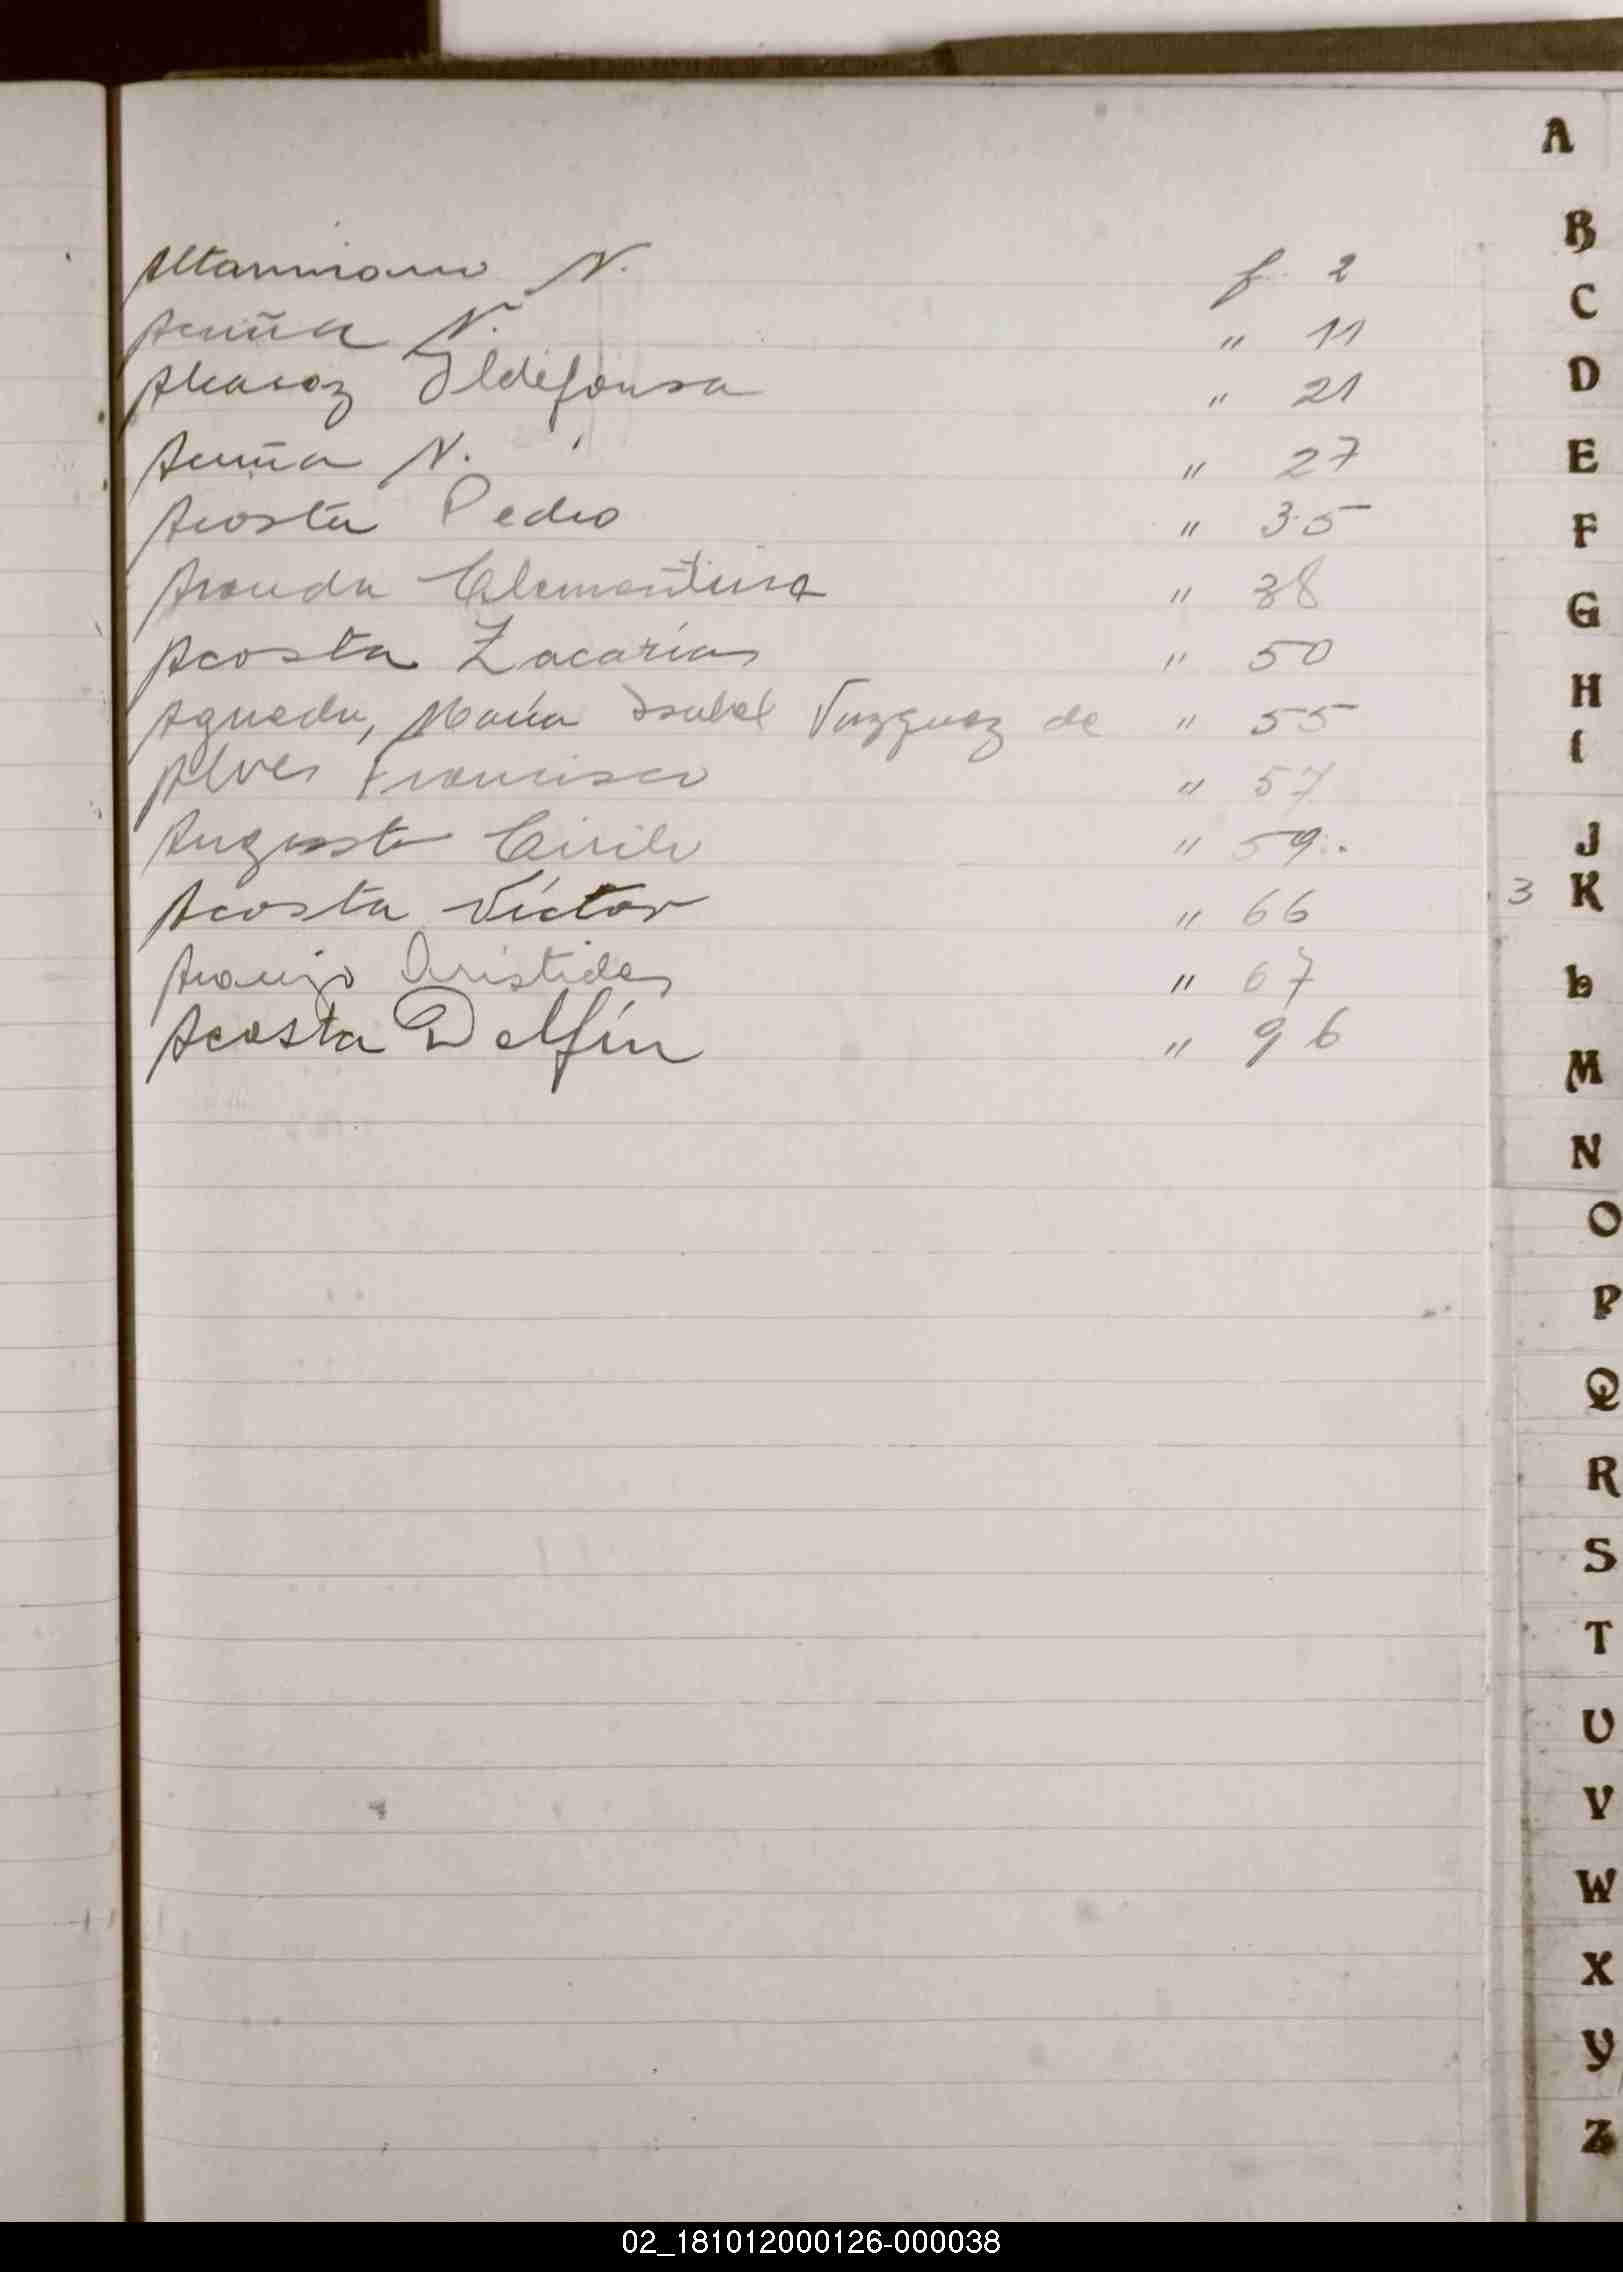 Altamirano N. f. 2
Acuña N. " 11
Alcaraz Ildefonsa " 21
Acuña N. " 27
Acosta Pedro " 35
Aranda Clementina " 38
Acosta Zacarías " 50
Agueda, María Isabel Vazquez de " 55
Alves Francisco " 57
Augusto Cirilo " 59
Acosta Víctor " 66
Araujo Aristides " 67
Acosta Delfín " 96
A
B
C
D
E
F
G
H
I
J
3 K
L
M
N
O
P
Q
R
S
T
U
V
W
X
Y
Z
02_181012000126-000038